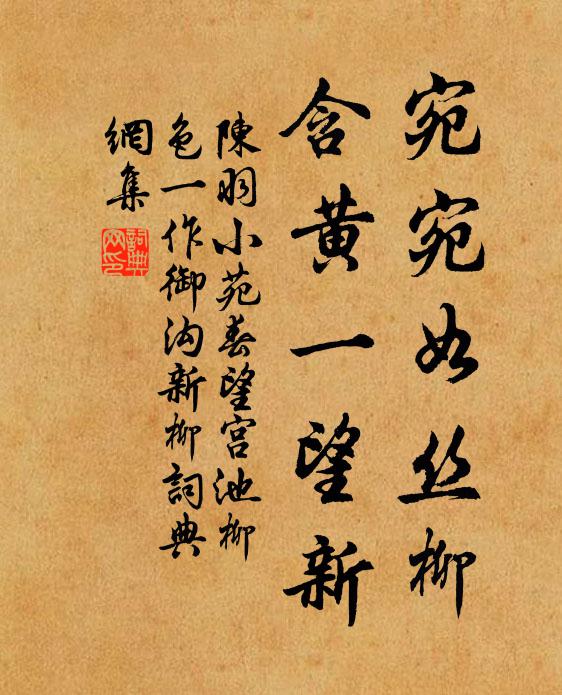 宛宛如丝柳
含黄一望新
陳羽小苑春望宮池柳
色一作御沟新柳詞典
網集
詞典网印